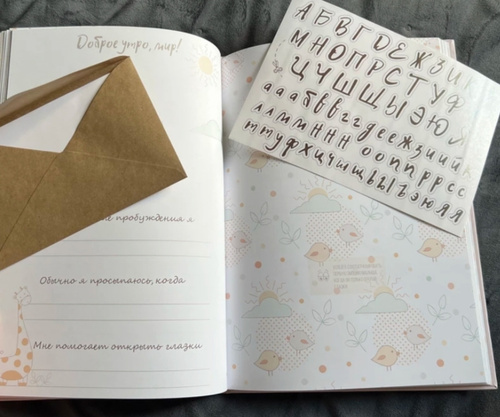 Доброе утро, мир!
пробуждения я
Обычно я просыпаюсь, когда
Мне помогает открыть глазки
АБВГДЕЖЗИ
МНОПРСТУФ
ЦЧШЩЫЭЮЯ
ааабввггдееёжзиий
ллммнннооппррсс
ттуфхцчшщьыъэюяя